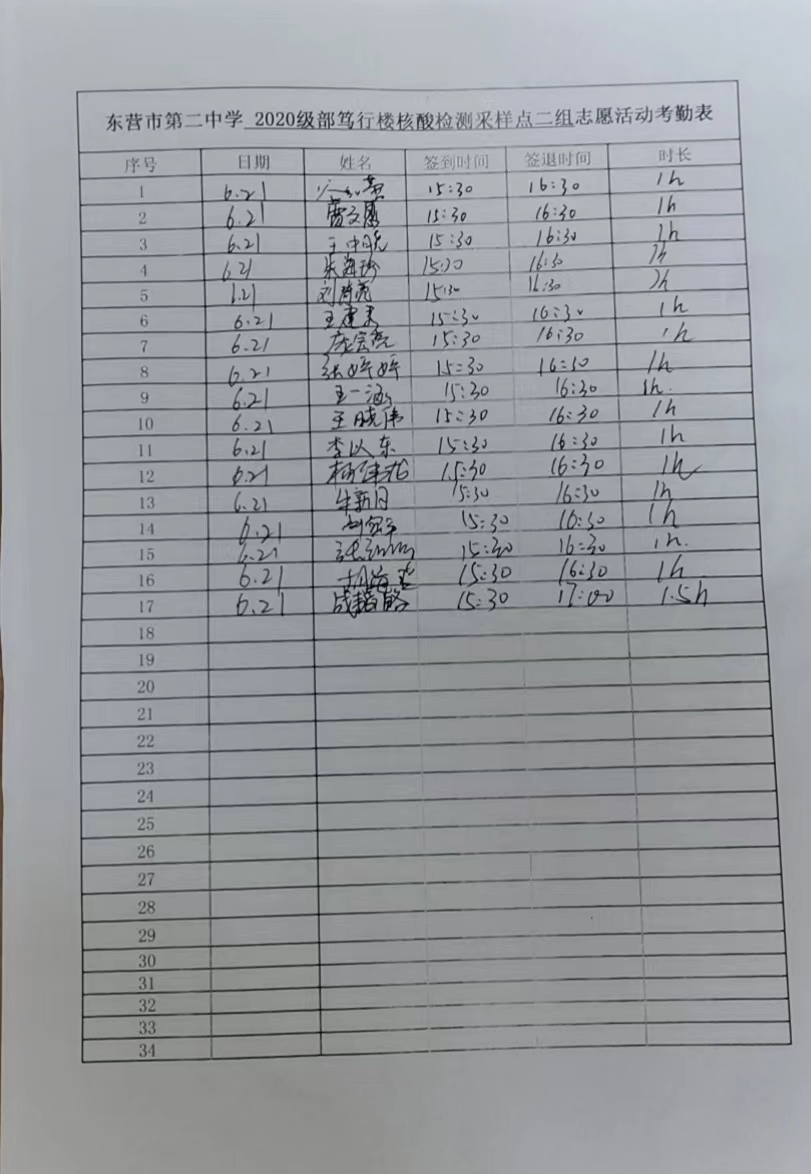 东营市第二中学 2020级部笃行楼核酸检测采样点二组志愿活动考勤表
序号 日期 姓名 签到时间 签退时间 时长
1 6.21 15:30 16:30 1h
2 6.21 雷文慧 15:30 16:30 1h
3 6.21 15:30 16:30 1h
4 6.21 15:30 16:30
5 6.21 15:30 16:30
6 6.21 15:30 16:30 1h
7 6.21 15:30 16:30 1h
8 6.21 张婷婷 15:30 16:30 1h
9 6.21 王一涵 15:30 16:30 1h.
10 6.21 王晓伟 15:30 16:30 1h
11 6.21 李以东 15:30 16:30 1h
12 6.21 15:30 16:30 1h
13 6.21 牛新月 15:30 16:30 1h
14 6.21 15:30 16:30 1h
15 6.21 15:30 16:30 1h.
16 6.21 15:30 16:30 1h
17 6.21 15:30 17:00 1.5h
18
19
20
21
22
23
24
25
26
27
28
29
30
31
32
33
34